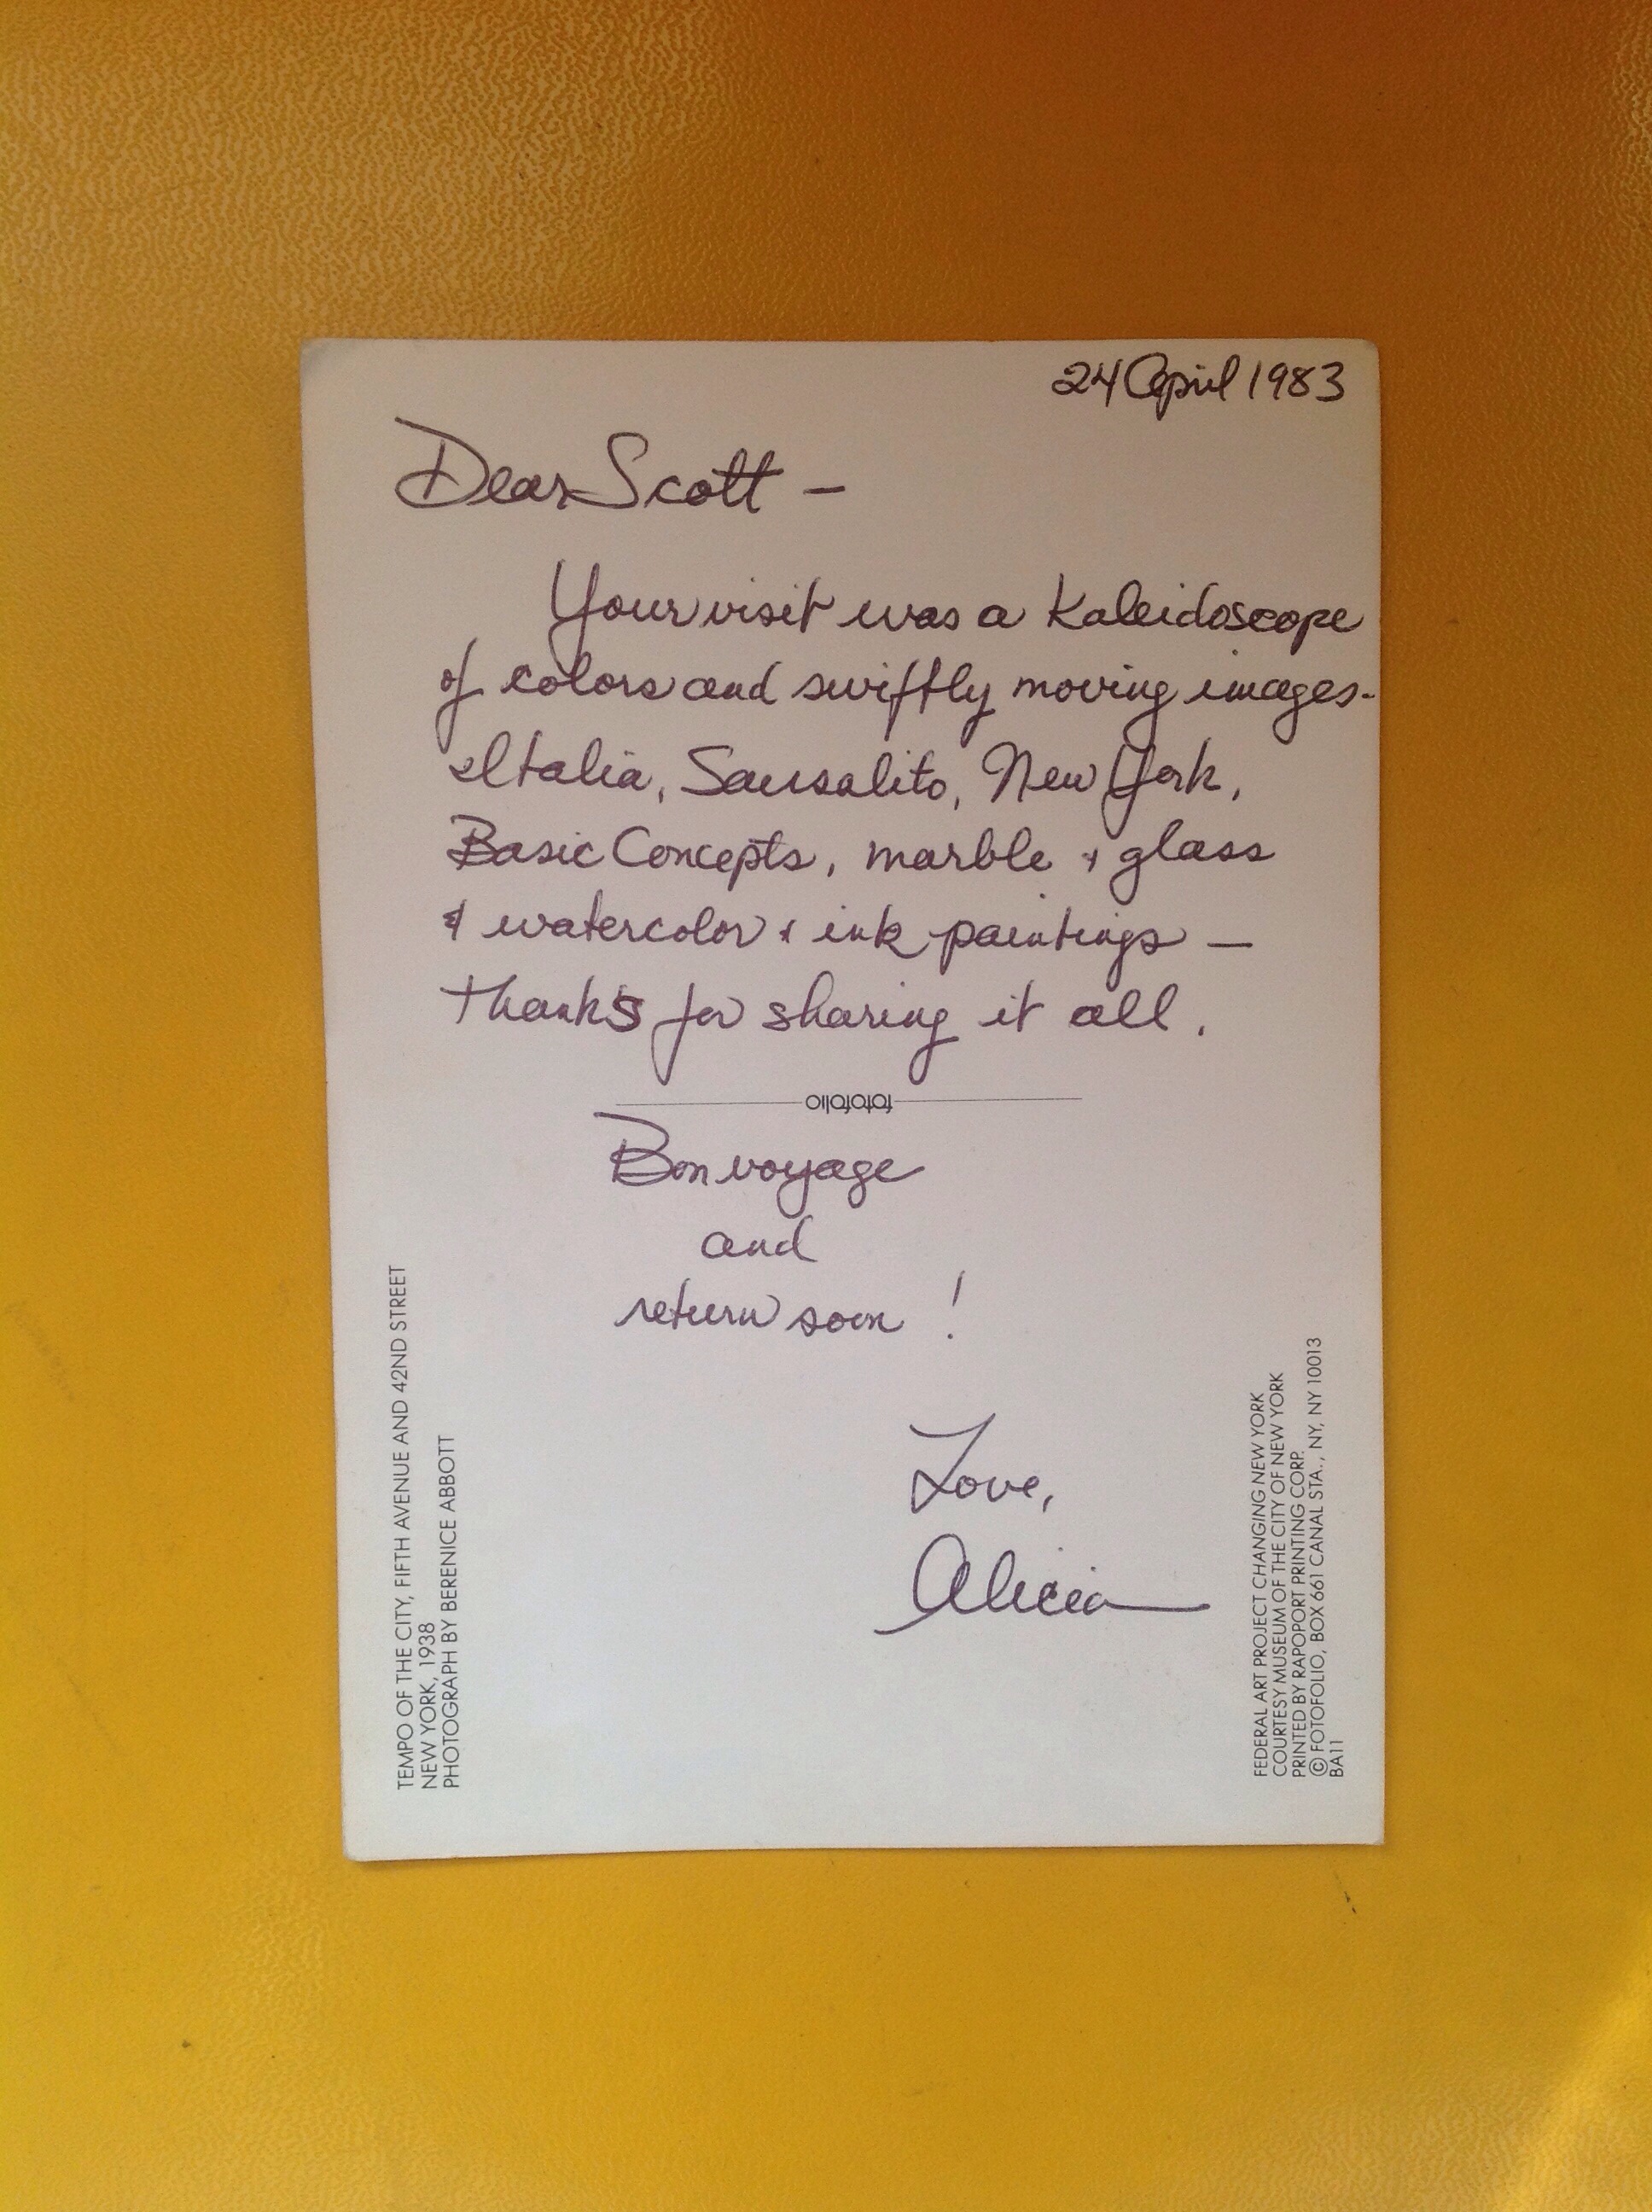 24 April 1983
Dear Scott —
Your visit was a Kaleidoscope
of colors and swiftly moving images-
Italia, Sausalito, New York,
Basic Concepts, marble + glass
& watercolor & ink paintings —
thanks for sharing it all.
fotofolio
Bon voyage
and
return soon!
Love,
Alicia
TEMPO OF THE CITY, FIFTH AVENUE AND 42ND STREET
NEW YORK, 1938
PHOTOGRAPH BY BERENICE ABBOTT
FEDERAL ART PROJECT CHANGING NEW YORK
COURTESY MUSEUM OF THE CITY OF NEW YORK
PRINTED BY RAPOPORT PRINTING CORP.
© FOTOFOLIO, BOX 661 CANAL STA., NY, NY 10013
BA11